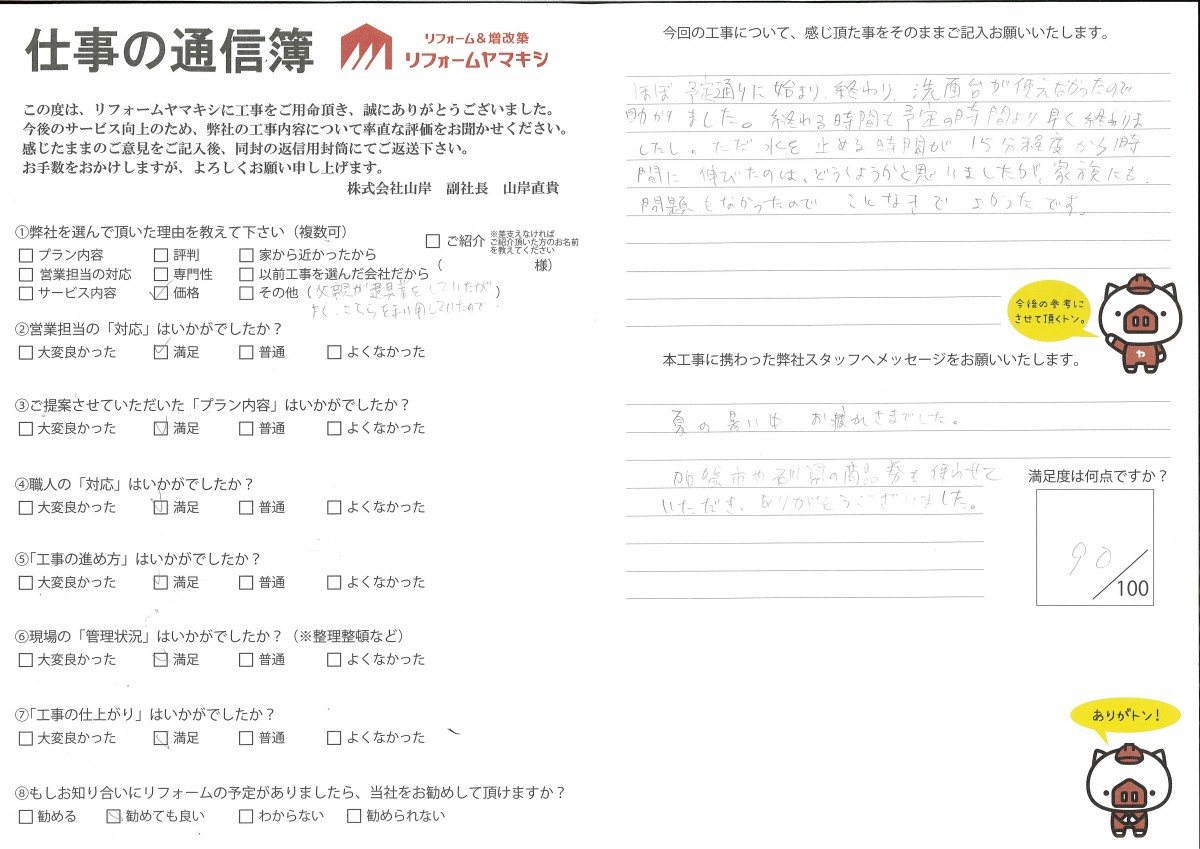 仕事の通信簿
リフォーム＆増改築
リフォームヤマキシ
この度は、リフォームヤマキシに工事をご用命頂き、誠にありがとうございました。
今後のサービス向上のため、弊社の工事内容について率直な評価をお聞かせください。
感じたままのご意見をご記入後、同封の返信用封筒にてご返送下さい。
お手数をおかけしますが、よろしくお願い申し上げます。
株式会社山岸　副社長　山岸直貴
①弊社を選んで頂いた理由を教えて下さい（複数可）
□ プラン内容　□ 評判　□ 家から近かったから
□ 営業担当の対応　□ 専門性　□ 以前工事を選んだ会社だから
□ サービス内容　☑ 価格　□ その他（父親が建具業をしていたが）
よく、こちらを利用していたので
□ ご紹介 ※差支えなければ
ご紹介頂いた方のお名前
を教えてください
（　　　様）
②営業担当の「対応」はいかがでしたか？
□ 大変良かった　☑ 満足　□ 普通　□ よくなかった
③ご提案させていただいた「プラン内容」はいかがでしたか？
□ 大変良かった　☑ 満足　□ 普通　□ よくなかった
④職人の「対応」はいかがでしたか？
□ 大変良かった　☑ 満足　□ 普通　□ よくなかった
⑤「工事の進め方」はいかがでしたか？
□ 大変良かった　☑ 満足　□ 普通　□ よくなかった
⑥現場の「管理状況」はいかがでしたか？（※整理整頓など）
□ 大変良かった　☑ 満足　□ 普通　□ よくなかった
⑦「工事の仕上がり」はいかがでしたか？
□ 大変良かった　☑ 満足　□ 普通　□ よくなかった
⑧もしお知り合いにリフォームの予定がありましたら、当社をお勧めして頂けますか？
□ 勧める　☑ 勧めても良い　□ わからない　□ 勧められない
今回の工事について、感じ頂た事をそのままご記入お願いいたします。
ほぼ予定通りに始まり、終わり、洗面台が使えなかったので
助かりました。終わる時間も予定の時間より早く終わりま
したし。ただ水を止める時間が15分程度から1時
間に伸びたのは、どうしようかと思いましたが、家族にも
問題もなかったので ことなきで よかったです。
今後の参考に
させて頂くトン。
や
本工事に携わった弊社スタッフへメッセージをお願いいたします。
夏の暑い中　お疲れさまでした。
加賀市や石川県の商品券も使わせて
いただき、ありがとうございました。
満足度は何点ですか？
90／100
ありがトン！